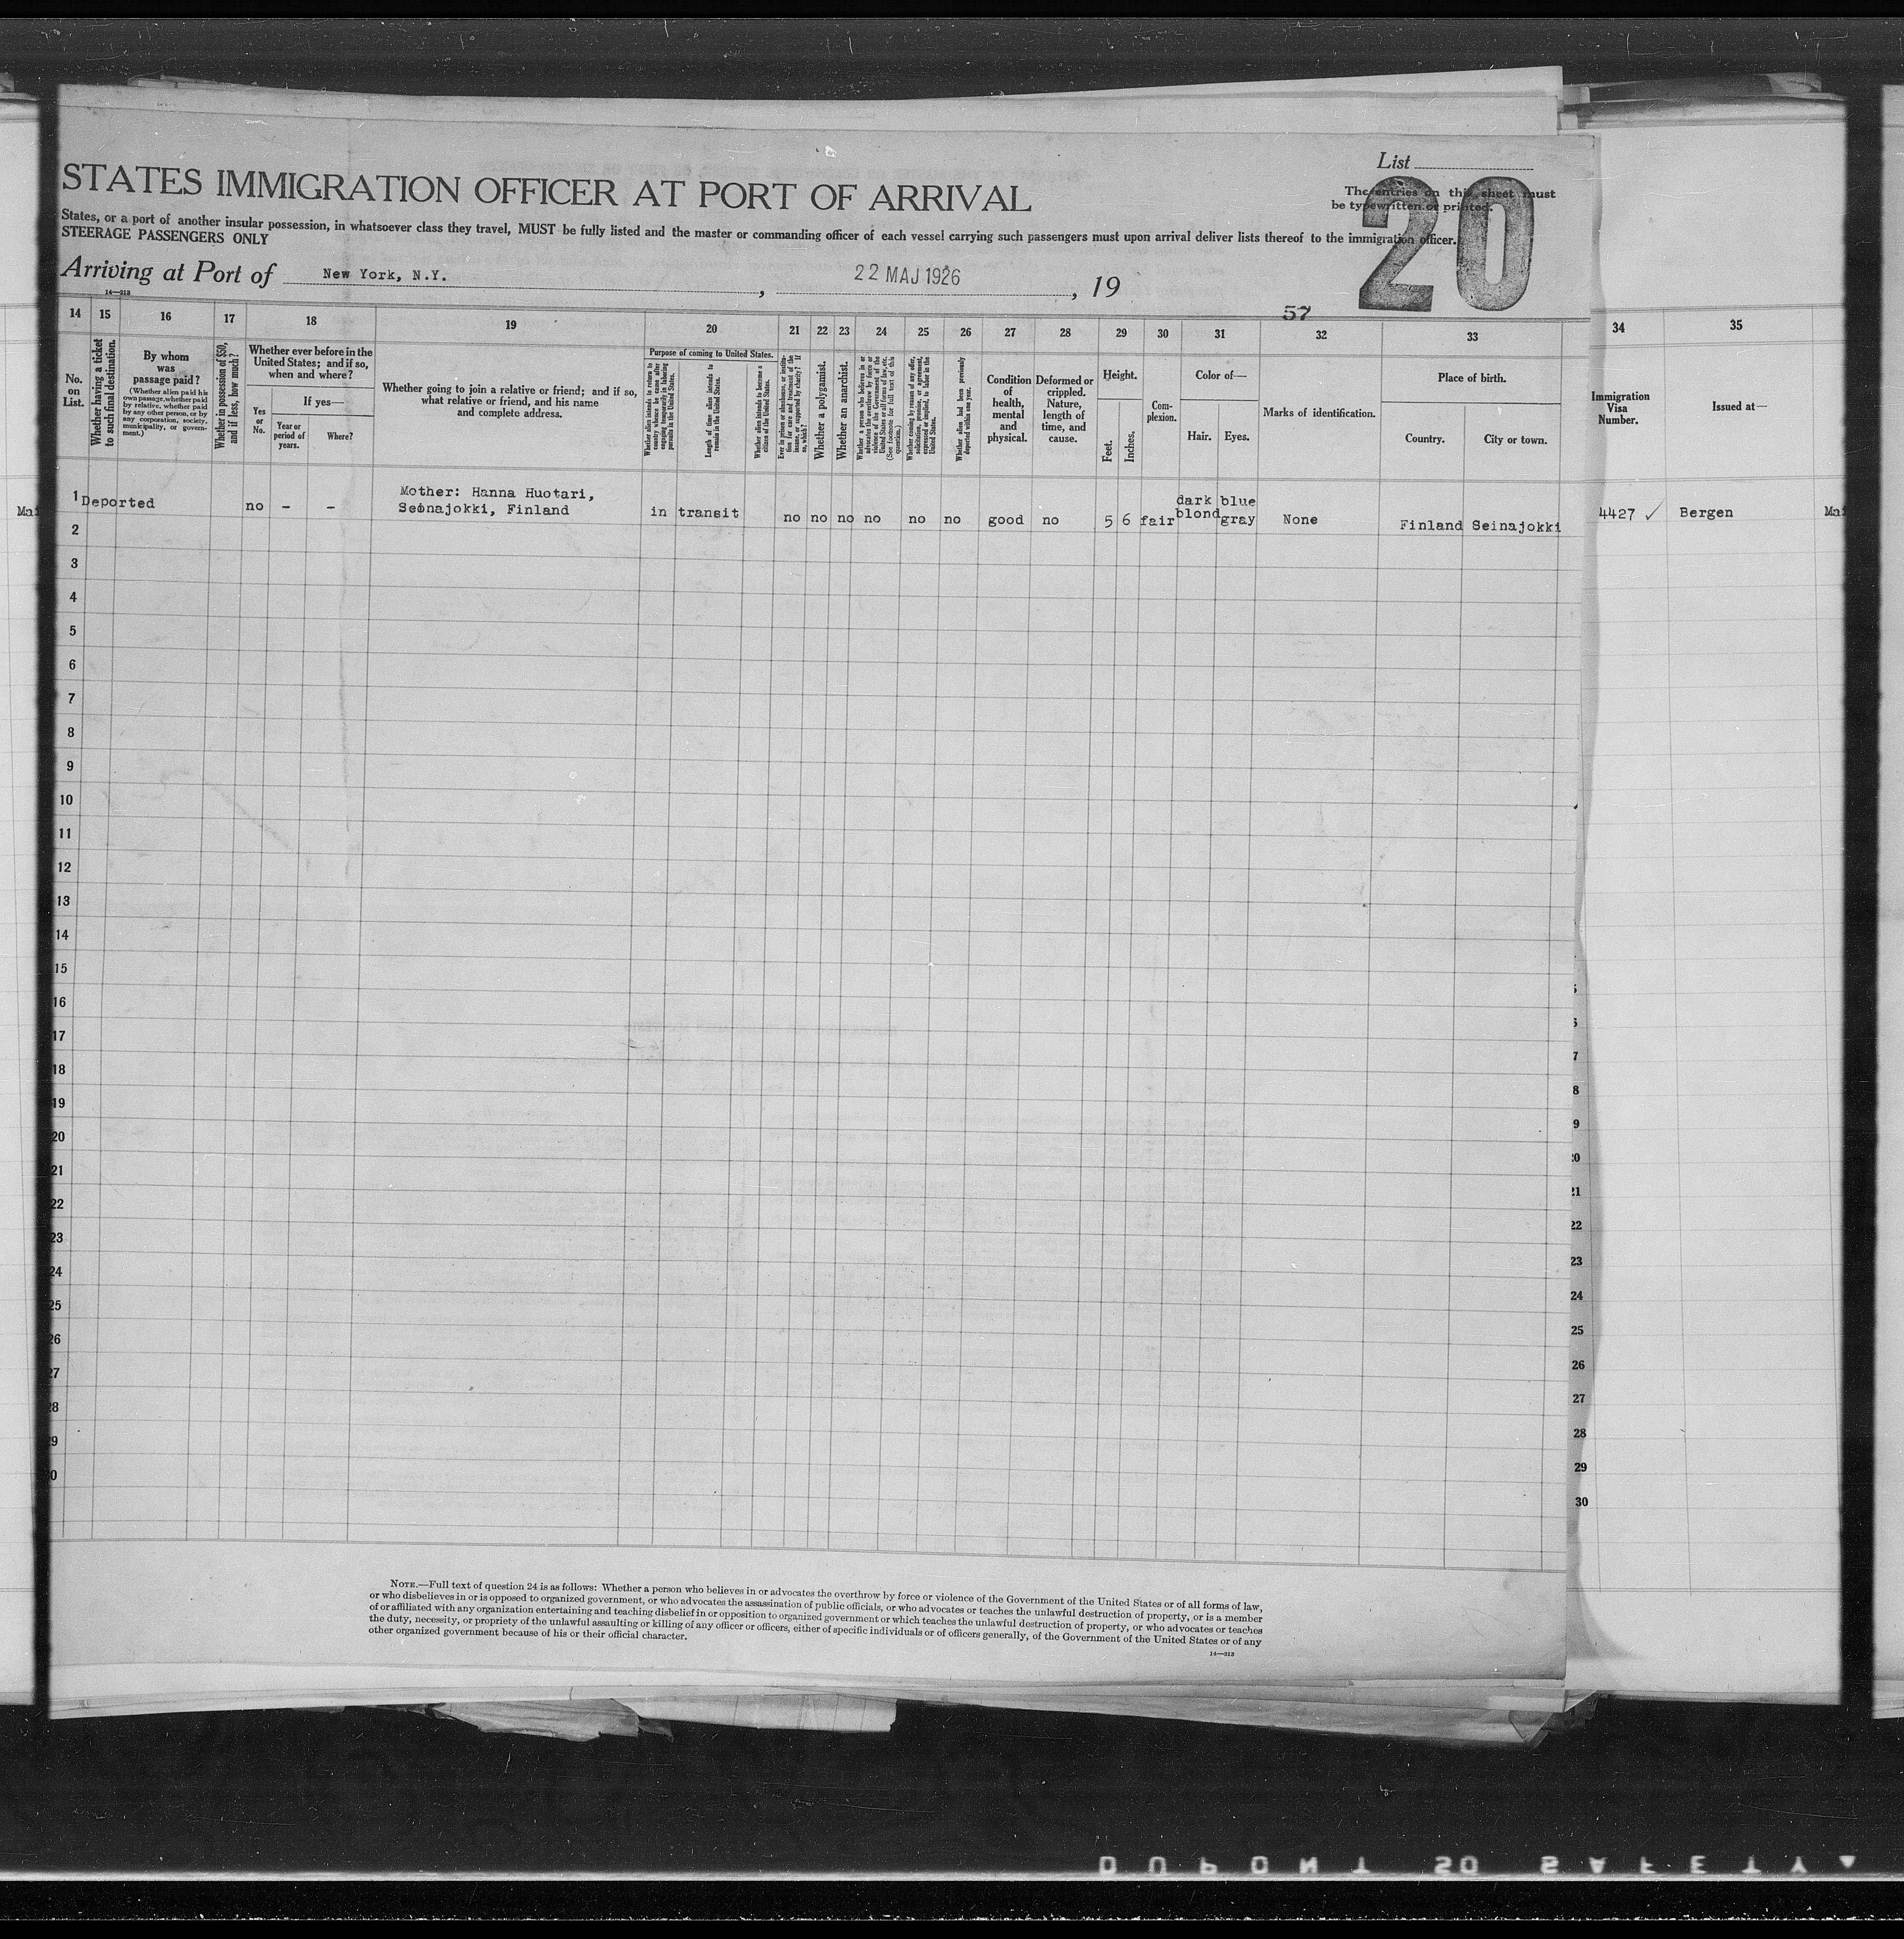 List
STATES IMMIGRATION OFFICER AT PORT OF ARRIVAL
The entries on this sheet must
be typewritten or printed.
20
States, or a port of another insular possession, in whatsoever class they travel, MUST be fully listed and the master or commanding officer of each vessel carrying such passengers must upon arrival deliver lists thereof to the immigration officer.
STEERAGE PASSENGERS ONLY
Arriving at Port of New York, N.Y. , 22 MAJ 1926 , 19
14—213
57
14 15 16 17 18 19 20 21 22 23 24 25 26 27 28 29 30 31 32 33 34 35
No.
on
List.
Whether having a ticket
to such final destination.
By whom
was
passage paid?
(Whether alien paid his
own passage, whether paid
by relative, whether paid
by any other person, or by
any corporation, society,
municipality, or govern-
ment.)
Whether in possession of $50,
and if less, how much?
Whether ever before in the
United States; and if so,
when and where?
Yes
or
No.
If yes—
Year or
period of
years.
Where?
Whether going to join a relative or friend; and if so,
what relative or friend, and his name
and complete address.
Purpose of coming to United States.
Whether alien intends to return to
country whence he came after
engaging temporarily in laboring
pursuits in the United States.
Length of time alien intends to
remain in the United States.
Whether alien intends to become a
citizen of the United States.
Ever in prison or almshouse, or institu-
tion for care and treatment of the
insane, or supported by charity? If
so, which?
Whether a polygamist.
Whether an anarchist.
Whether a person who believes in or
advocates the overthrow by force or
violence of the Government of the
United States or all forms of law, etc.
(See footnote for full text of this
question.)
Whether coming by reason of any offer,
solicitation, promise, or agreement,
expressed or implied, to labor in the
United States.
Whether alien had been previously
deported within one year.
Condition
of
health,
mental
and
physical.
Deformed or
crippled.
Nature,
length of
time, and
cause.
Height.
Feet.
Inches.
Com-
plexion.
Color of—
Hair.
Eyes.
Marks of identification.
Place of birth.
Country.
City or town.
Immigration
Visa
Number.
Issued at—
1 Deported no – – Mother: Hanna Huotari,
Seinajokki, Finland in transit no no no no no no good no 5 6 fair dark
blond blue
gray None Finland Seinajokki 4427 ✓ Bergen
2
3
4
5
6
7
8
9
10
11
12
13
14
15
16
17
18
19
20
21
22
23
24
25
26
27
28
29
30
22
23
24
25
26
27
28
29
30
NOTE.—Full text of question 24 is as follows: Whether a person who believes in or advocates the overthrow by force or violence of the Government of the United States or of all forms of law,
or who disbelieves in or is opposed to organized government, or who advocates the assassination of public officials, or who advocates or teaches the unlawful destruction of property, or is a member
of or affiliated with any organization entertaining and teaching disbelief in or opposition to organized government or which teaches the unlawful destruction of property, or who advocates or teaches
the duty, necessity, or propriety of the unlawful assaulting or killing of any officer or officers, either of specific individuals or of officers generally, of the Government of the United States or of any
other organized government because of his or their official character.
14—213
DUPONT SO SAFETY